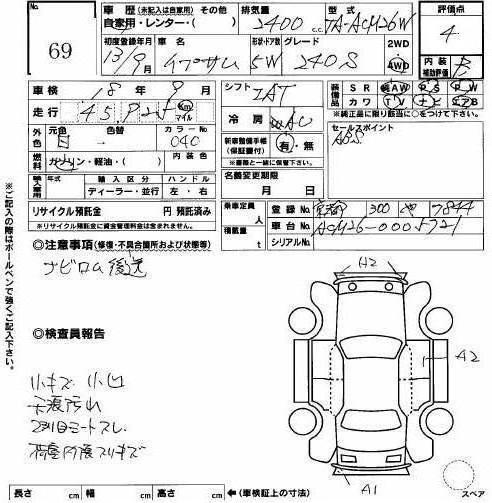 69
車歴 (未記入は自家用) その他
自家用・レンター・( )
排気量 2400 c.c.
型式 TA-ACM26W
評価点 4
初度登録年月 13/9月
車名 イプサム
形状・ドア数 5W
グレード 240S
2WD・4WD
内装補助評価 B
車検 18年9月
走行 Km マイル
シフト IAT
冷房 AC
装備品 SR AW PS PW
カワ TV ナビ エアB
※純正品に限り該当に○をつけて下さい
外色 元色 色替 カラーNo 040
燃料 ガソリン・軽油・( ) 内装色
新車整備手帳(保証書付) 有・無
※書類と一緒に保管下さい。
セールスポイント
ABS
輸入車用 年式 輸入区分 ハンドル
ディーラー・並行 左・右
名義変更期限
月 日
リサイクル預託金 円 預託済み
※リサイクル預託金に資金管理料金は含まれません。
乗車定員 人
積載量 t
登録No 京都 300 7844
車台No ACM26-0005721
シリアルNo
◎注意事項 (修復・不具合箇所および状態等)
ナビロム後送
◎検査員報告
小キズ 小凹
2列目シートスレ
A2
A2
A1
スペア
長さ cm 幅 cm 高さ cm ←(車検証上の寸法)
※ご記入の際はボールペンで強くご記入下さい。